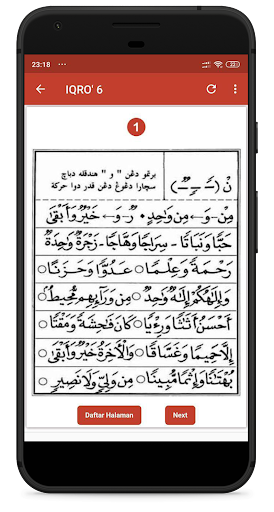 23:18 ... 22
IQRO' 6
1
نْ (ـًـ ـٍـ ـٌـ) برتمو دڠن " و " هندقله دباچ
سچارا دڠوڠ دڠن قدر دوا حركة
مِنْ - وَ ← مِن وَاحِدٍ ۰ رٌ - وَ ← خَيْرٌ وَأَبْقَى
حَبًّا وَنَبَاتًا - سِرَاجًا وَهَّاجًا - زَجْرَةٌ وَاحِدَةٌ
رَحْمَةً وَعِلْمًا ○ عَدُوًّا وَحَزَنًا ○
وَإِلٰهُكُمْ إِلٰهٌ وَاحِدٌ ○ مِن وَرَآئِهِم مُّحِيطٌ ○
أَحْسَنُ أَثَاثًا وَرِءْيًا ○ كَانَ فَاحِشَةً وَمَقْتًا
إِلَّا حَمِيمًا وَغَسَّاقًا ○ وَالْآخِرَةُ خَيْرٌ وَأَبْقَى
بُهْتَانًا وَإِثْمًا مُّبِينًا ○ مِن وَلِيٍّ وَلَا نَصِيرٍ ○
Daftar Halaman Next